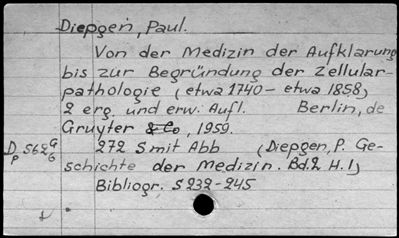 Diepgen, Paul.
Von der Medizin der Aufklarung
bis zur Begründung der Zellular-
pathologie (etwa 1740 - etwa 1858)
2 erg. und erw. Aufl. Berlin, de
Gruyter & Co, 1959.
D p 562 G 6 272 S mit Abb (Diepgen, P. Ge-
schichte der Medizin. Bd. 2 H. 1)
Bibliogr. S 232-245